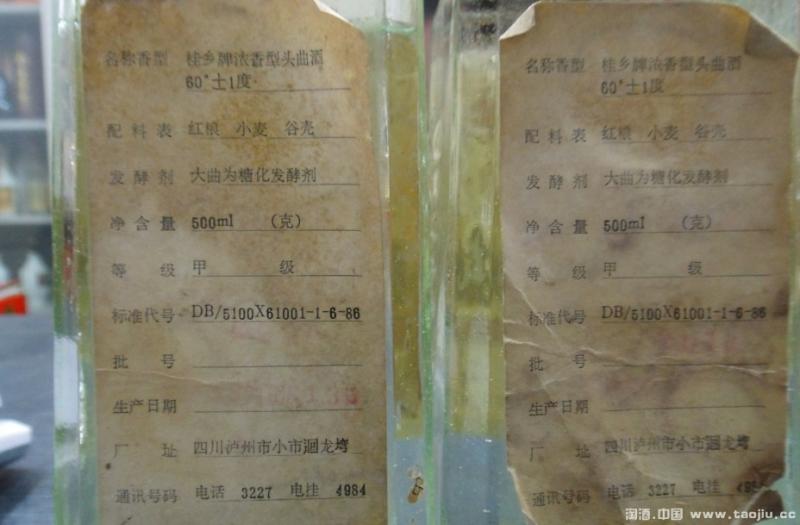 名称香型 桂乡牌浓香型头曲酒
60°±1度
配料表 红粮 小麦 谷壳
发酵剂 大曲为糖化发酵剂
净含量 500ml (克)
等级 甲级
标准代号 DB/5100X61001-1-6-86
批号
生产日期
厂址 四川泸州市小市迴龙塆
通讯号码 电话 3227 电挂 4984
名称香型 桂乡牌浓香型头曲酒
60°±1度
配料表 红粮 小麦 谷壳
发酵剂 大曲为糖化发酵剂
净含量 500ml (克)
等级 甲级
标准代号 DB/5100X61001-1-6-86
批号
生产日期
厂址 四川泸州市小市迴龙塆
通讯号码 电话 3227 电挂
淘酒.中国 www.taojiu.cc